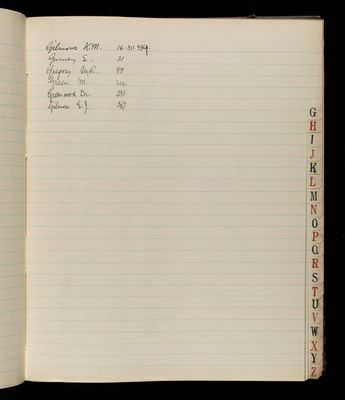 Gilmour K.M. 16-30-359
Gurney E. 31
Gregory 88
Green M. 214
Greenwood Dr. 231.
Gilmore E.J. 367
G
H
I
J
K
L
M
N
O
P
Q
R
S
T
U
V
W
X
Y
Z